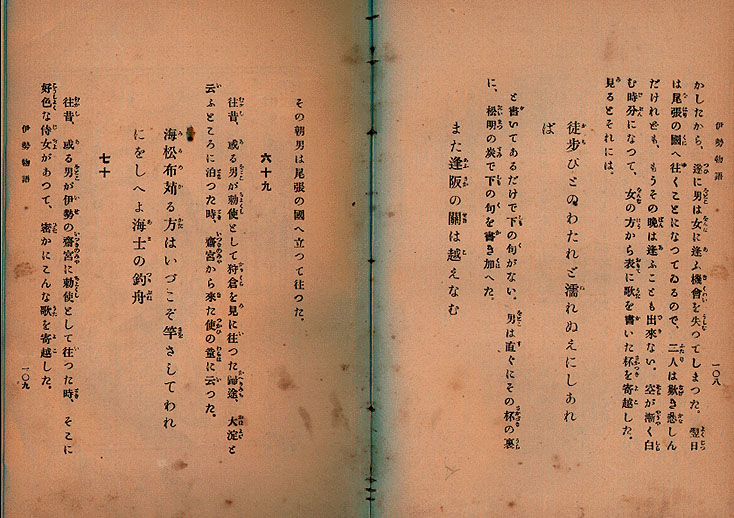 伊勢物語
一〇八
かしたから、遂に男は女に逢ふ機會を失つてしまつた。翌日
は尾張の國へ往くことになつてゐるので、二人は歎き悉しん
だけれども、もうその晩は逢ふことも出來ない。空が漸く白
む時分になつて、女の方から表に歌を書いた杯を寄越した。
見るとそれには、
徒歩びとのわたれど濡れぬえにしあれ
ば
と書いてあるだけで下の句がない。男は直ぐにその杯の裏
に、松明の炭で下の句を書き加へた。
また逢阪の關は越えなむ
その朝男は尾張の國へ立つて往つた。
六十九
往昔、或る男が勅使として狩倉を見に往つた歸途、大淀と
云ふところに泊つた時、齋宮から來た使の童に云つた。
海松布苅る方はいづこぞ竿さしてわれ
にをしへよ海士の釣舟
七十
往昔、或る男が伊勢の齋宮に勅使として往つた時、そこに
好色な侍女があつて、密かにこんな歌を寄越した。
伊勢物語
一〇九